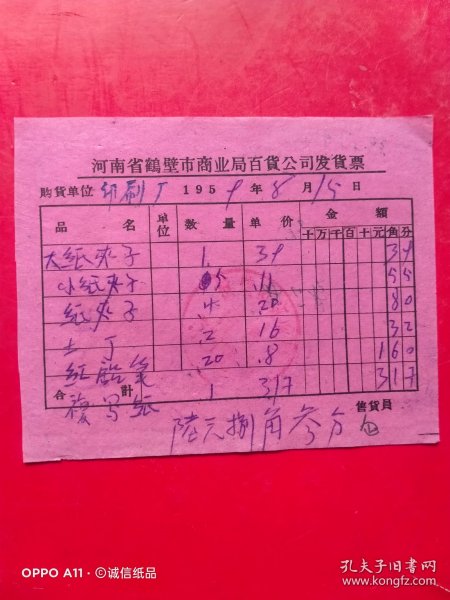 河南省鶴壁市商业局百貨公司发貨票
购貨单位 印刷厂 1959年8月15日
品名 单位 数量 单价 金額
千 万 千 百 十 元 角 分
大紙夾子 1 .39 39
小紙夾子 5 .11 55
紙夾子 4 .20 80
土丁 2 16 32
紅船笔 .20 .8 160
合計
複写紙 1 317 317
售貨員
陆元捌角叁分
OPPO A11 · ©诚信纸品
孔夫子旧书网
www.kongfz.com